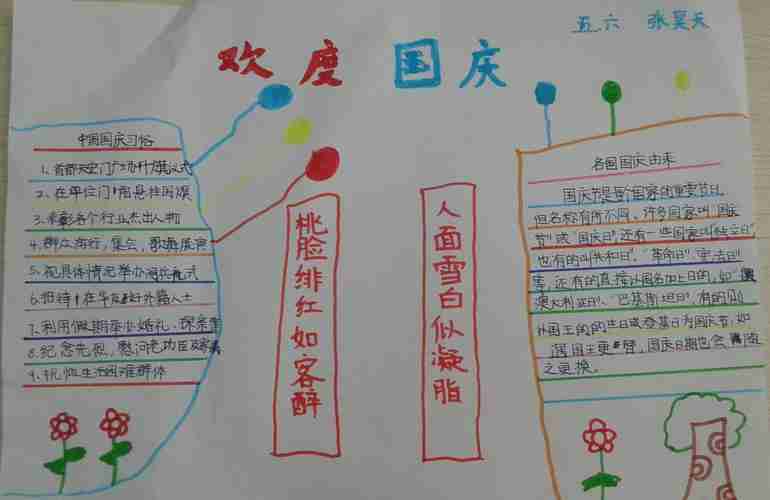 五.六 张昊天
欢度国庆
中国国庆习俗
1、首都天安门广场升旗仪式
2、在单位门口悬挂国旗
3、表彰各个行业杰出人物
4、群众游行，集会，歌舞
5、视具体情况举办阅兵仪式
6、招待在华友好外籍人士
7、利用假期举办婚礼、探亲
8、纪念先烈，慰问老功臣
9、扶恤生活困难群体
桃脸绯红如客醉
人面雪白似凝脂
各国国庆由来
国庆节是每个国家的重要节日，
但名称有所不同。许多国家叫“国庆
节”或“国庆日”，还有一些国家叫“独立日”，
也有的叫“共和日”、“革命日”、“宪法日”
等，还有的直接以国名加上日的，如“
澳大利亚日”、“巴基斯坦日”，有的以
国王的生日或登基日为国庆节，如
国王更替，国庆日期也会随
之更换。